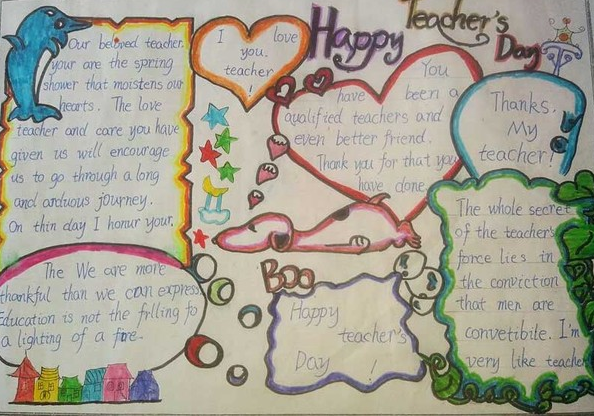 Happy Teacher's
Day
Our beloved teacher.
your are the spring
shower that moistens our
hearts. The love
teacher and care you have
given us will encourage
us to go through a long
and arduous journey.
On thin day I honur your.
I love
you,
teacher
!
You
have been a
qualified teachers and
even better friend.
Thank you for that you
have done.
Thanks.
My
teacher!
The whole secret
of the teacher's
force lies in
the conviction
that men are
convetibile. I'm
very like teacher
The We are more
thankful than we can express.
Education is not the frlling fo
a lighting of a fire.
Boo
Happy
teacher's
Day !